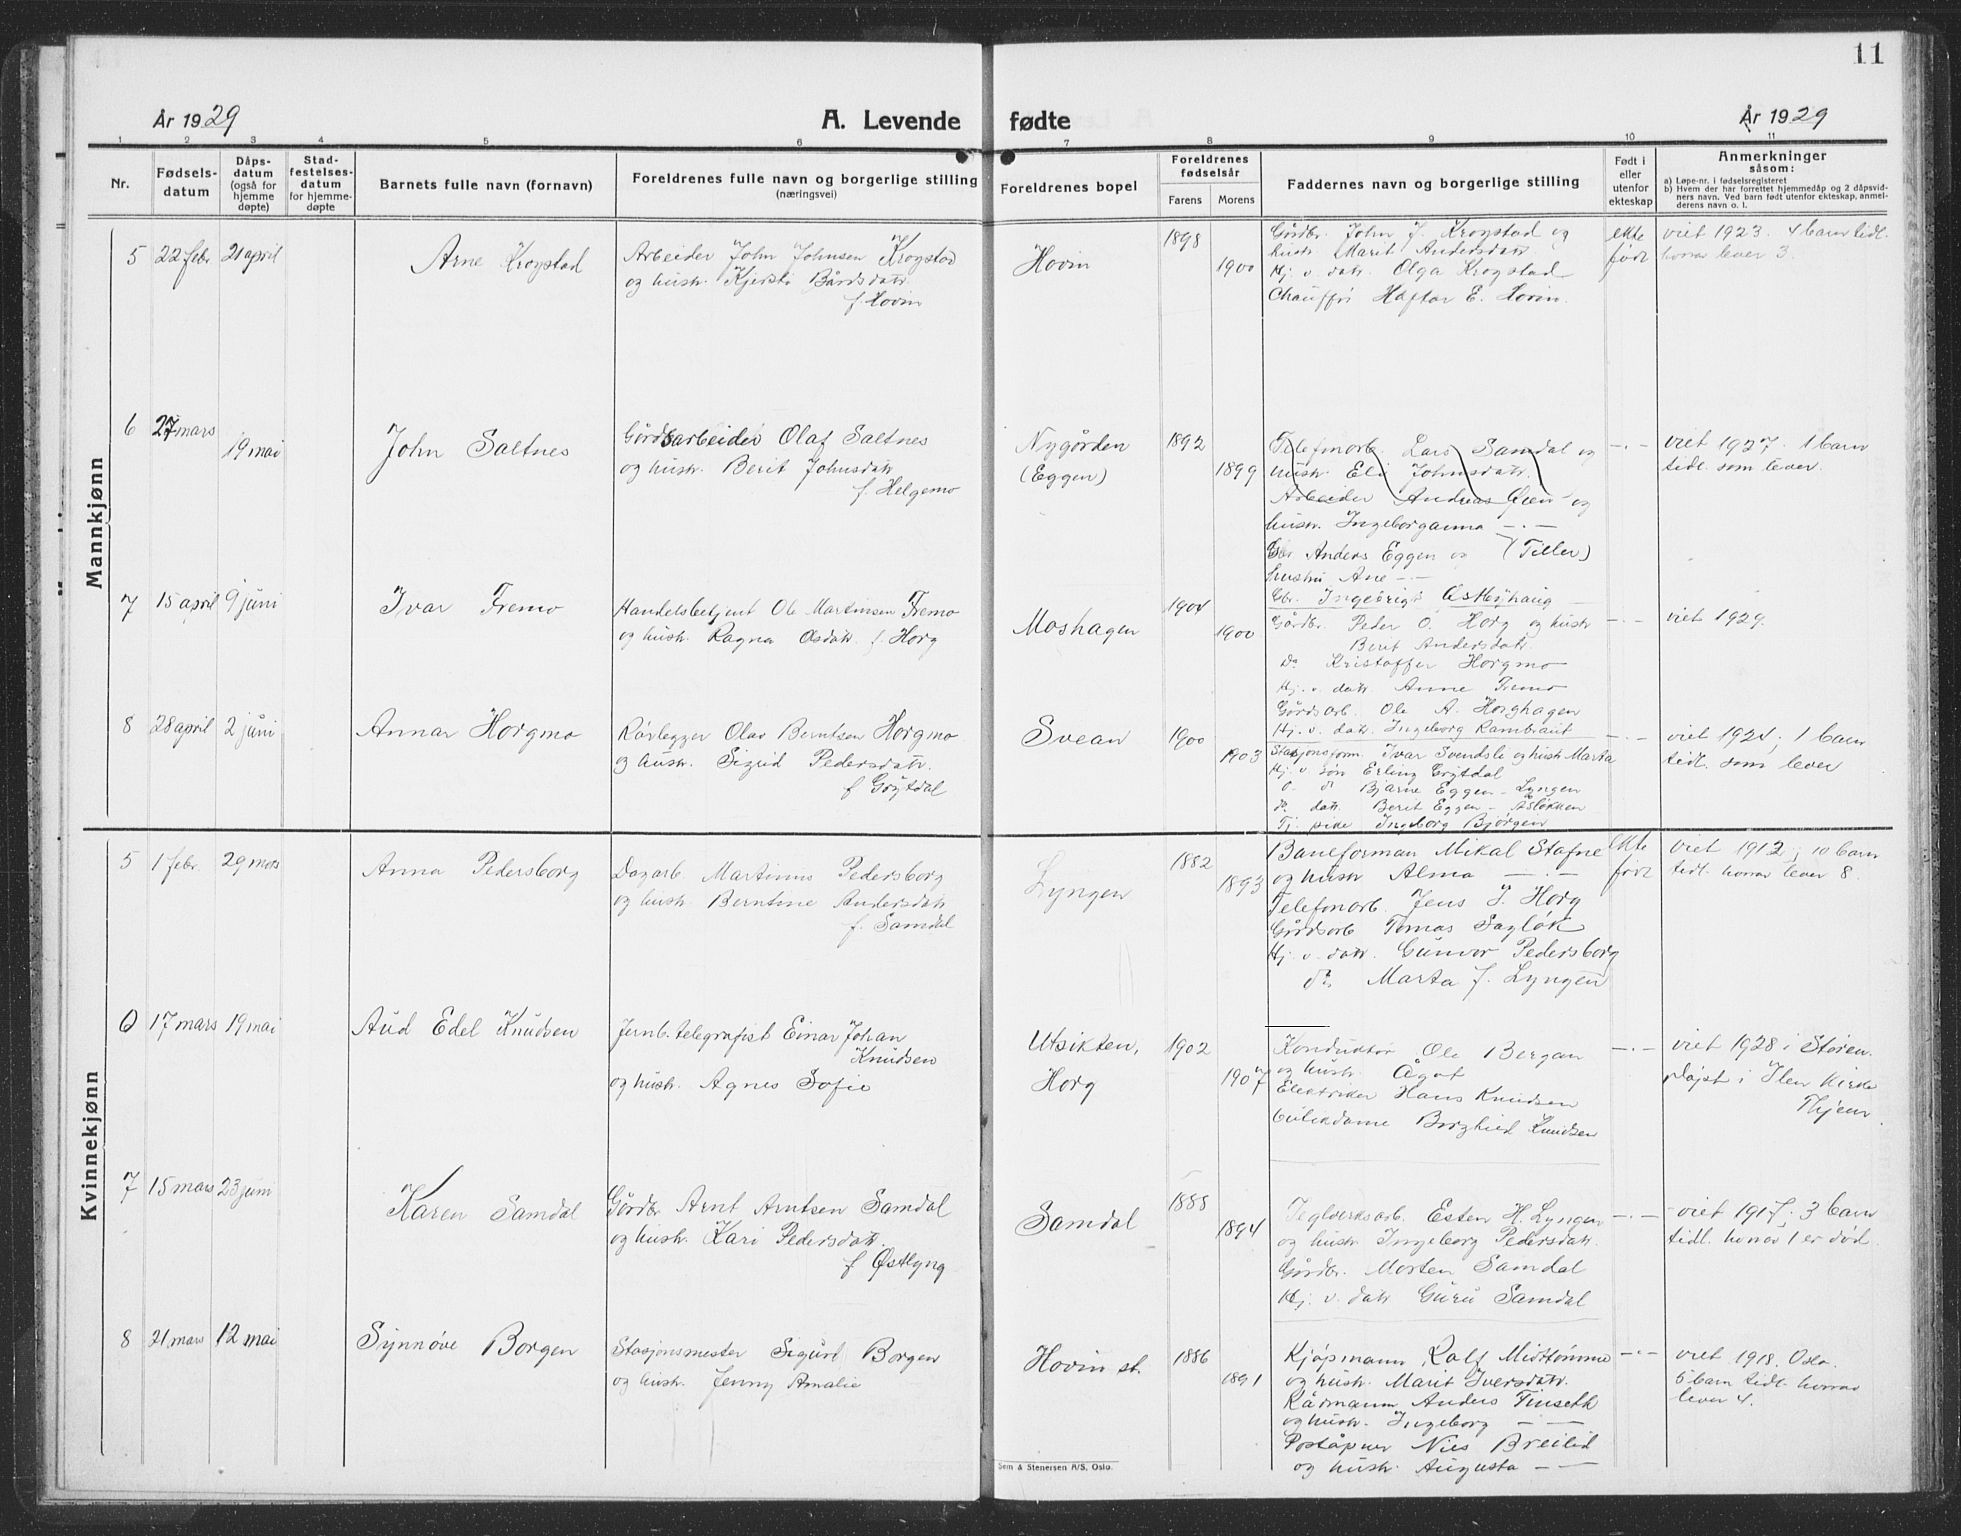 11
År 1929
A. Levende fødte
År 1929
1 2 3 4 5 6 7 8 9 10 11
Nr.
Fødsels-
datum
Dåps-
datum
(også for
hjemme
døpte)
Stad-
festelses-
datum
for hjemme-
døpte
Barnets fulle navn (fornavn)
Foreldrenes fulle navn og borgerlige stilling
(næringsvei)
Foreldrenes bopel
Foreldrenes
fødselsår
Farens Morens
Faddernes navn og borgerlige stilling
Født i
eller
utenfor
ekteskap
Anmerkninger
såsom:
a) Løpe-nr. i fødselsregisteret
b) Hvem der har forrettet hjemmedåp og 2 dåpsvid-
ners navn. Ved barn født utenfor ekteskap, anmel-
derens navn o. l.
Mannkjønn
5 22 febr 21 april
Arne Krogstad
Arbeider John Johnsen Krogstad
og hustr. Kjersti Bårdsdatr.
f. Hovin
Hovin
1898
1900
Gårdbr. John J. Krogstad og
hustr. Marit Andersdatr
Hj. v. datr. Olga Krogstad
Chauffør Haftor E. Hovin.
ekte
født
viet 1923. 4 barn tidl.
hvorav lever 3.
6 27 mars 19 mai
John Saltnes
Gårdsarbeider Olaf Saltnes
og hustr. Berit Johnsdatr
f. Helgemo
Nygården
(Eggen)
1892
1899
Telefonarb. Lars Samdal og
hustr. Eli Johnsdatr.
Arbeider Andreas Øien og
hustr. Ingeborganna — · —
Gbr Anders Eggen og (Tiller)
hustru Ane — · —
Gbr. Ingebrigt Østbyhaug
— · —
viet 1927. 1 barn
tidl. som lever.
7 15 april 9 juni
Ivar Fremo
Handelsbetjent Ole Martinsen Fremo
og hustr. Ragna Osdatr. f. Horg
Moshagen
1904
1900
Gårdbr. Peder O. Horg og hustr
Berit Andersdatr.
Do Kristoffer Horgmo
Hj. v. datr. Anne Fremo
Gårdsarb. Ole A. Horghagen
Hj. v. datr. Ingeborg Rambraut
— · —
viet 1929.
8 28 april 2 juni
Annar Horgmo
Rørlegger Olav Berntsen Horgmo
og hustr. Sigrid Pedersdatr.
f Grytdal
Svean
1900
1903
Stasjonsform. Ivar Svendsli og hustr Marta
Hj. v søn Erling Grytdal
d. do Bjarne Eggen – Lyngen
do. datr. Berit Eggen –
Tj. pike Ingeborg Bjørgen
— · —
viet 1924; 1 barn
tidl. som lever
Kvinnekjønn
5 1 febr. 29 mars
Anna Pedersborg
Dagarb. Martinus Pedersborg
og hustr. Berntine Andersdatr
f. Samdal
Lyngen
1882
1893
Baneforman Mikal Stafne
og hustr Alma — · —
Telefonarb. Jens J. Horg
Gårdsarb Tomas Sagløk
Hj. v. datr. Gunvor Pedersborg
do. Marta J. Lyngen
ekte
født
viet 1912; 10 barn
tidl. hvorav lever 8.
6 17 mars 19 mai
Aud Edel Knudsen
Jernb.telegrafist Einar Johan
Knudsen
og hustr. Agnes Sofie
Utsikten,
Horg
1902
1907
Konduktør Ole Bergan
og hustr. Ågot
Elektriker Hans Knudsen
Butikdame Borghild Knudsen
— · —
viet 1928 i Støren.
Døpt i Ilen Kirke
Thjem.
7 15 mars 23 juni
Karen Samdal
Gårdbr Arnt Arntsen Samdal
og hustr. Kari Pedersdatr.
f Østlyng
Samdal
1885
1894
Teglverksarb. Esten H. Lyngen
og hustr. Ingeborg Pedersdatr.
Gårdbr. Morten Samdal
Hj. v. datr Guru Samdal
— · —
viet 1917; 3 barn
tidl. hvorav 1 er død.
8 21 mars 12 mai
Synnøve Borgen
Stasjonsmester Sigurt Borgen
og hustr. Jenny Amalie
Hovin st.
1886
1891
Kjøpmann Ralf Midttømme
og hustr. Marit Iversdatr.
Råsmann Anders Tinseth
og hustr. Ingeborg — · —
Poståpner Nils Breilid
og hustr. Augusta — · —
— · —
viet 1918. Oslo.
5 barn tidl. hvorav
lever 4.
Sem & Stenersen A/S, Oslo.